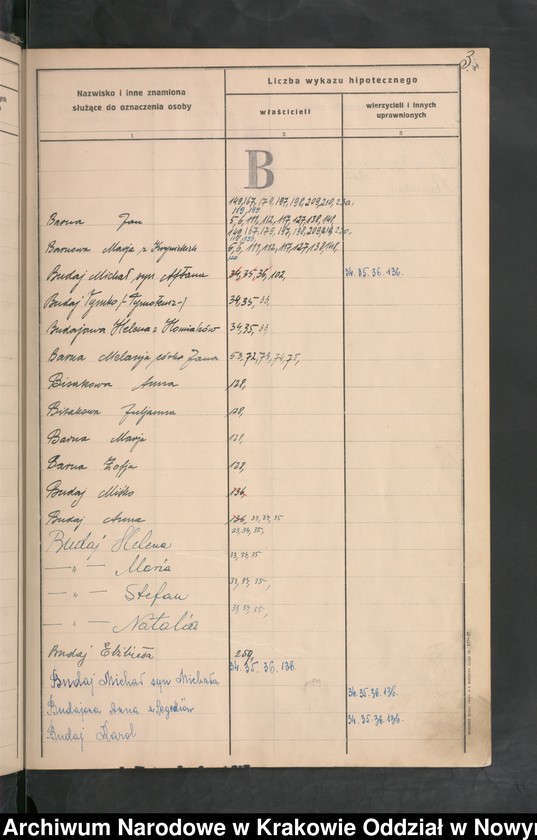 3
Liczba wykazu hipotecznego
Nazwisko i inne znamiona
służące do oznaczenia osoby
właścicieli
wierzycieli i innych
uprawnionych
1 2 3
B
149, 167, 179, 197, 198, 209, 210, 230,
Barna Jan 5, 6, 111, 112, 117, 127, 138, 141,
149, 167, 179, 197, 198, 209, 210, 230,
Barnowa Marja z 5, 6, 111, 112, 117, 127, 138, 141,
Budaj Michał syn 34, 35, 36, 102, 34. 35. 36. 136.
Budaj Tymko (-Tymoteusz-) 34, 35,
Budajowa Helena z Homiaków 34, 35,
Barna Melanja córka Jana 53, 72, 73, 74, 75,
Bisakowa Anna 128,
Bisakowa Juljanna 128,
Barna Marja 128,
Barna Zofja 128,
Budaj Miśko 136,
Budaj Anna 136, 33, 34, 35
Budaj Helena 33, 34, 35,
—„— Maria 33, 34, 35
—„— Stefan 33, 34, 35,
—„— Natalia 33, 34, 35,
Budaj Elżbieta 250,
34. 35. 36. 136.
Budaj Michał syn Michała
34. 35. 36. 136.
Budajowa Anna z
34. 35. 36. 136.
Budaj Karol
Archiwum Narodowe w Krakowie Oddział w Nowym